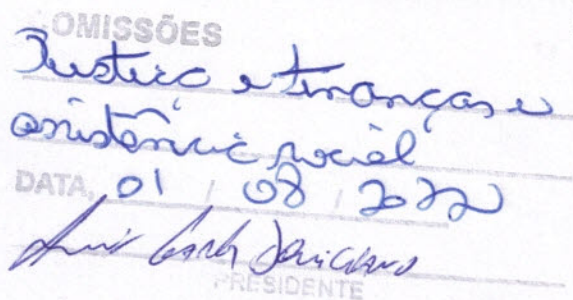 COMISSÕES
Justiça e Finanças e
assistência social
DATA, 01 / 08 / 2022
PRESIDENTE